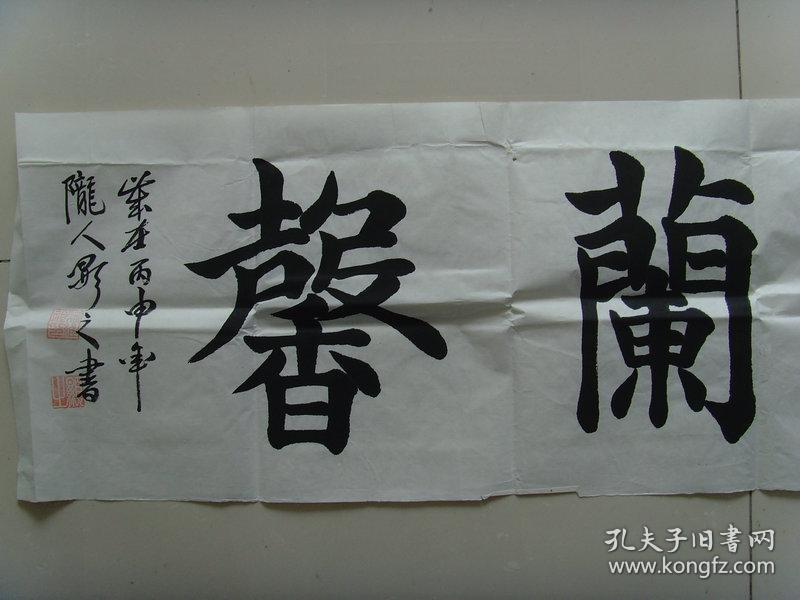 蘭
馨
歲在丙申年
隴人影之書
孔夫子旧书网
www.kongfz.com